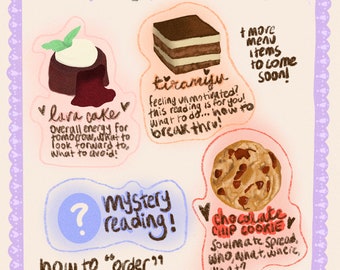 + more
menu
items
to come
soon!
tiramisu
feeling unmotivated?
this reading is for you!
what to do... how to
break thru!
lava cake
overall energy for
tomorrow, what to
look forward to,
what to avoid!
?
mystery
reading!
chocolate
chip cookie
soulmate spread,
who, what, where,
how to "order"